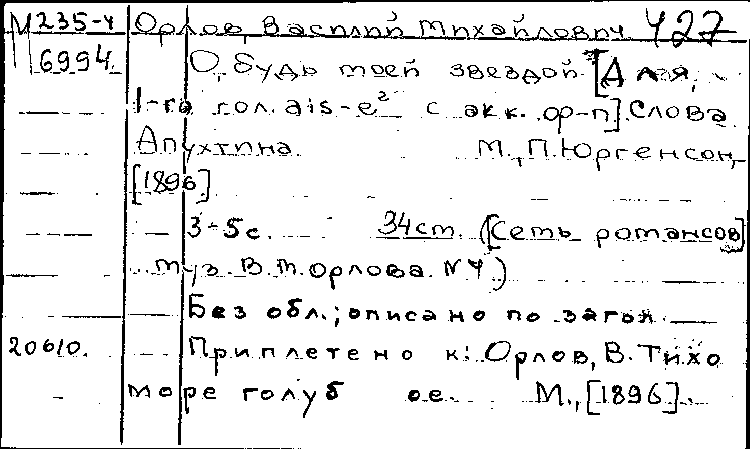 М 235-4 Орлов, Василий Михайлович 427
6994. О, будь моей звездой. [Для,
1-го гол. ais-e² с акк. ф-п] Слова
Апухтина М., П. Юргенсон,
[1896]
3-5с. 34cm. ([Семь романсов]
муз. В.М. Орлова. N 4)
Без обл.; описано по загол
20610. Приплетено к: Орлов, В. Тихо
море голуб ое. М., [1896].